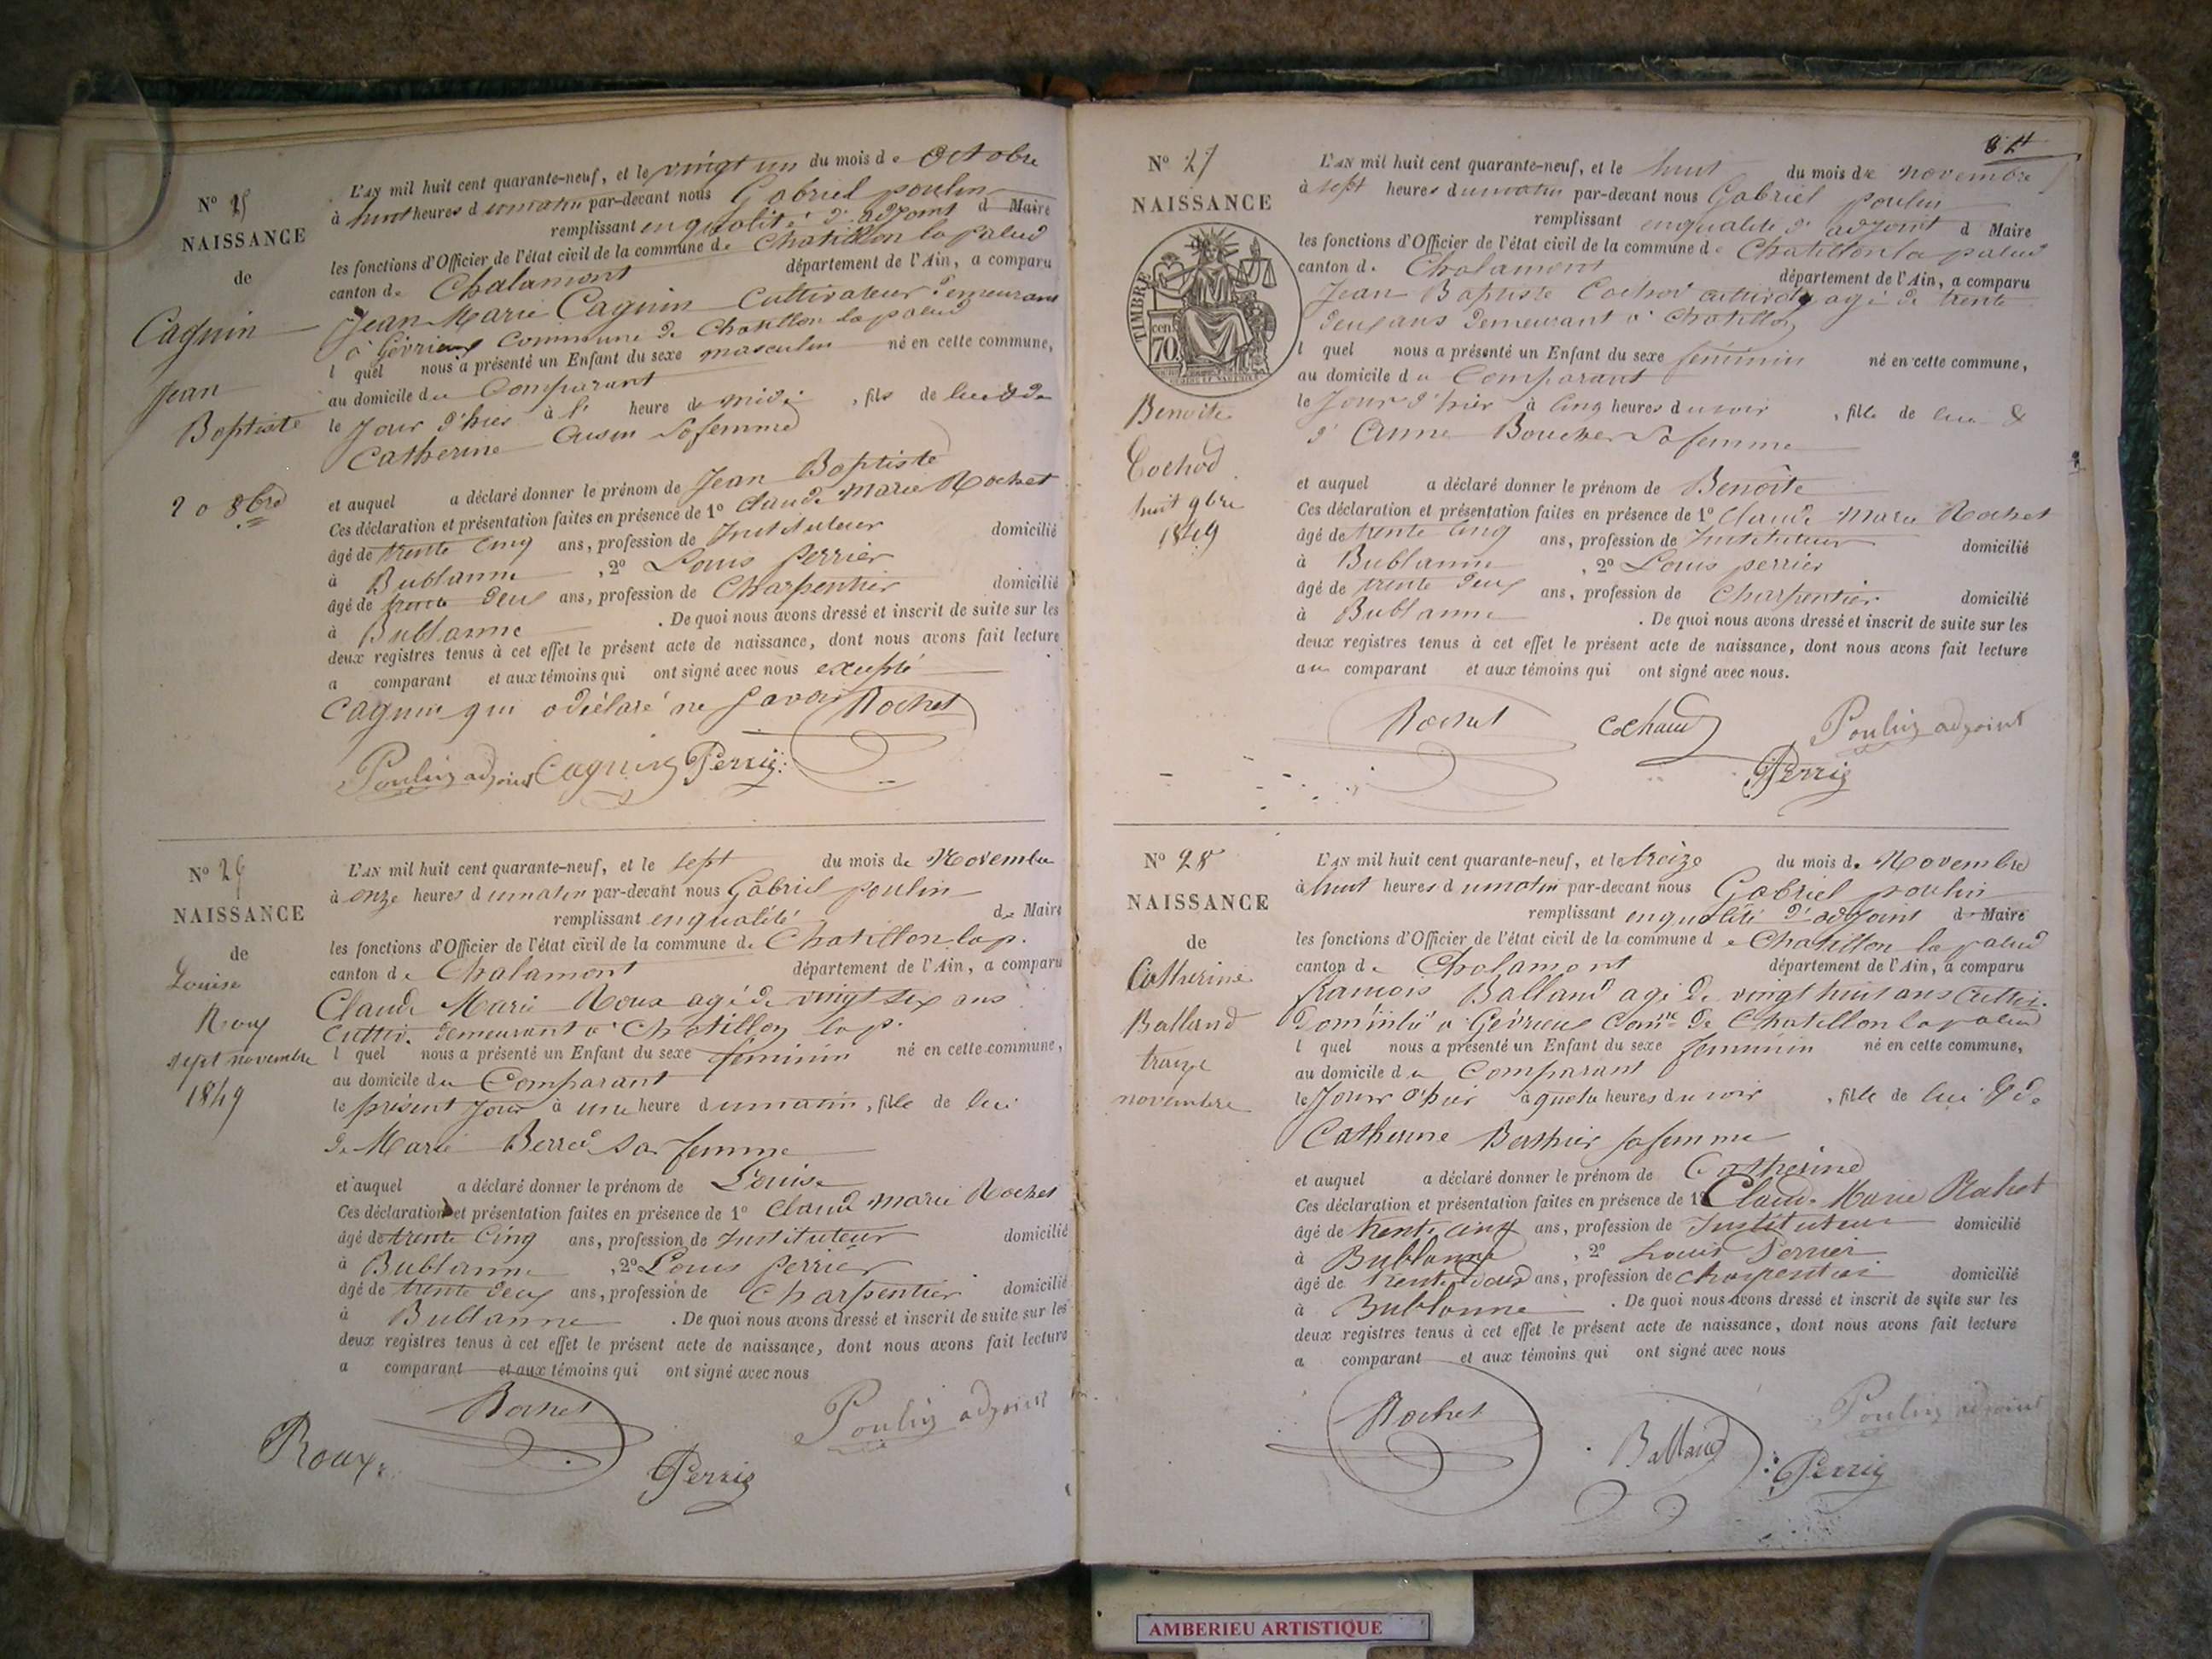 N° 25
NAISSANCE
de
Caguin
Jean
Baptiste
20 8bre
L'AN mil huit cent quarante-neuf, et le vingt un du mois de Octobre
à huit heures du matin par-devant nous Gabriel poulin
remplissant en qualité d'adjoint d Maire
les fonctions d'Officier de l'état civil de la commune de Chatillon la palud
canton de Chalamont département de l'Ain, a comparu
Jean Marie Caguin Cultivateur demeurant
à Gévrieux Commune de Chatillon la palud
l quel nous a présenté un Enfant du sexe masculin né en cette commune,
au domicile du Comparant
le Jour d'hier à l' heure de midi, fils de lui & de
Catherine Cusin Sa femme
et auquel a déclaré donner le prénom de Jean Baptiste
Ces déclaration et présentation faites en présence de 1° Claude Marie Rochet
âgé de trente Cinq ans, profession de Instituteur domicilié
à Bublanne, 2° Louis Perrier
âgé de trente deux ans, profession de Charpentier domicilié
à Bublanne. De quoi nous avons dressé et inscrit de suite sur les
deux registres tenus à cet effet le présent acte de naissance, dont nous avons fait lecture
a comparant et aux témoins qui ont signé avec nous excepté
Caguin qui a déclaré ne Savoir Rochet
Poulin adjoint Caguin Perrier
N° 26
NAISSANCE
de
Louise
Roux
sept novembre
1849
L'AN mil huit cent quarante-neuf, et le sept du mois de Novembre
à onze heures du matin par-devant nous Gabriel poulin
remplissant en qualité de Maire
les fonctions d'Officier de l'état civil de la commune de Chatillon la p.
canton de Chalamont département de l'Ain, a comparu
Claude Marie Roux agé de vingt six ans
Cultiv. demeurant à Chatillon la p.
l quel nous a présenté un Enfant du sexe féminin né en cette commune,
au domicile du Comparant
le présent Jour à une heure du matin, fille de lui
de Marie Berrod Sa femme
et auquel a déclaré donner le prénom de Louise
Ces déclaration et présentation faites en présence de 1° Claude Marie Rochet
âgé de trente Cinq ans, profession de Instituteur domicilié
à Bublanne, 2° Louis Perrier
âgé de trente deux ans, profession de Charpentier domicilié
à Bublanne. De quoi nous avons dressé et inscrit de suite sur les
deux registres tenus à cet effet le présent acte de naissance, dont nous avons fait lecture
a comparant et aux témoins qui ont signé avec nous
Rochet Poulin adjoint
Roux Perrier
84
N° 27
NAISSANCE
TIMBRE
cen. 70
Benoite
Cochod
huit 9bre
1849
L'AN mil huit cent quarante-neuf, et le huit du mois de novembre
à sept heures du matin par-devant nous Gabriel poulin
remplissant en qualité d'adjoint d Maire
les fonctions d'Officier de l'état civil de la commune de Chatillon la palud
canton de Chalamont département de l'Ain, a comparu
Jean Baptiste Cochod cultivat agé de trente
deux ans demeurant à Chatillon
l quel nous a présenté un Enfant du sexe féminin né en cette commune,
au domicile du Comparant
le Jour d'hier à Cinq heures du soir, fille de lui &
d'Anne Boucher Sa femme
et auquel a déclaré donner le prénom de Benoîte
Ces déclaration et présentation faites en présence de 1° Claude Marie Rochet
âgé de trente Cinq ans, profession de Instituteur domicilié
à Bublanne, 2° Louis perrier
âgé de trente deux ans, profession de Charpentier domicilié
à Bublanne. De quoi nous avons dressé et inscrit de suite sur les
deux registres tenus à cet effet le présent acte de naissance, dont nous avons fait lecture
au comparant et aux témoins qui ont signé avec nous.
Rochet Cochaud Poulin adjoint
Perrier
N° 28
NAISSANCE
de
Catherine
Balland
treize
novembre
L'AN mil huit cent quarante-neuf, et le treize du mois de Novembre
à huit heures du matin par-devant nous Gabriel poulin
remplissant en qualité d'adjoint d Maire
les fonctions d'Officier de l'état civil de la commune de Chatillon la palud
canton de Chalamont département de l'Ain, a comparu
francois Balland agé de vingt huit ans Cultiv.
Domicilié à Gévrieux Comne de Chatillon la palud
l quel nous a présenté un Enfant du sexe feminin né en cette commune,
au domicile du Comparant
le Jour d'hier à quatre heures du soir, fille de lui & de
Catherine Berthier sa femme
et auquel a déclaré donner le prénom de Catherine
Ces déclaration et présentation faites en présence de 1° Claude Marie Rochet
âgé de trente cinq ans, profession de Instituteur domicilié
à Bublanne, 2° Louis Perrier
âgé de trente deux ans, profession de charpentier domicilié
à Bublanne. De quoi nous avons dressé et inscrit de suite sur les
deux registres tenus à cet effet le présent acte de naissance, dont nous avons fait lecture
a comparant et aux témoins qui ont signé avec nous
Rochet Balland Poulin adjoint
Perrier
AMBERIEU ARTISTIQUE